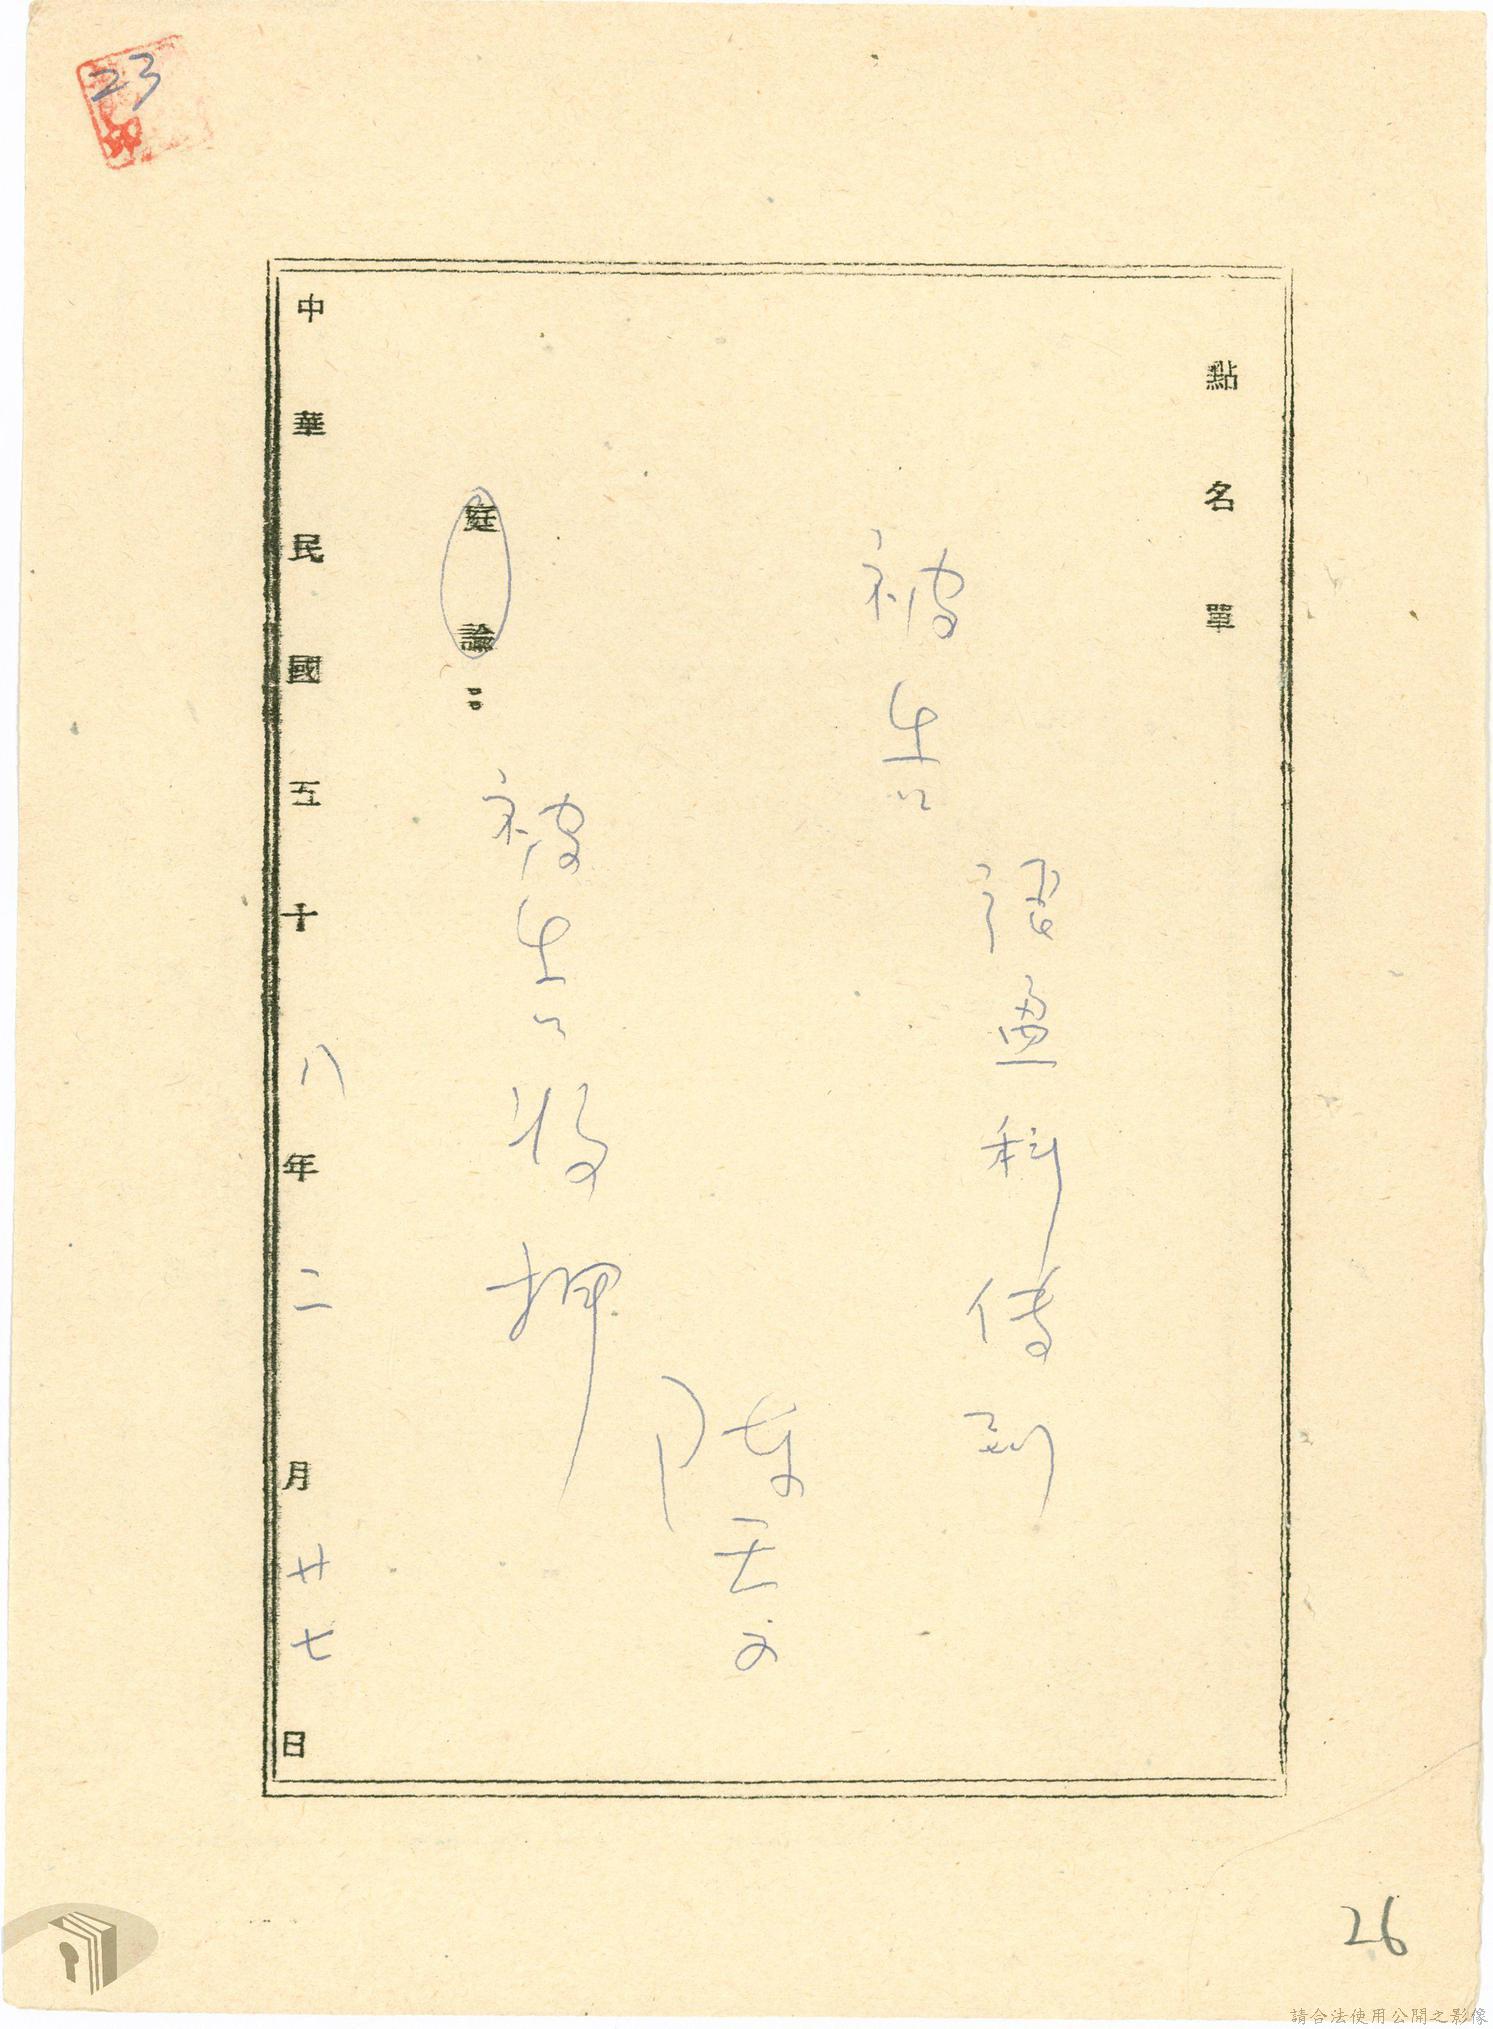 23
點名單
被告 褶盈科 傳到
庭諭：被告收押
陳
中華民國五十八年二月廿七日
26
請合法使用公開之影像